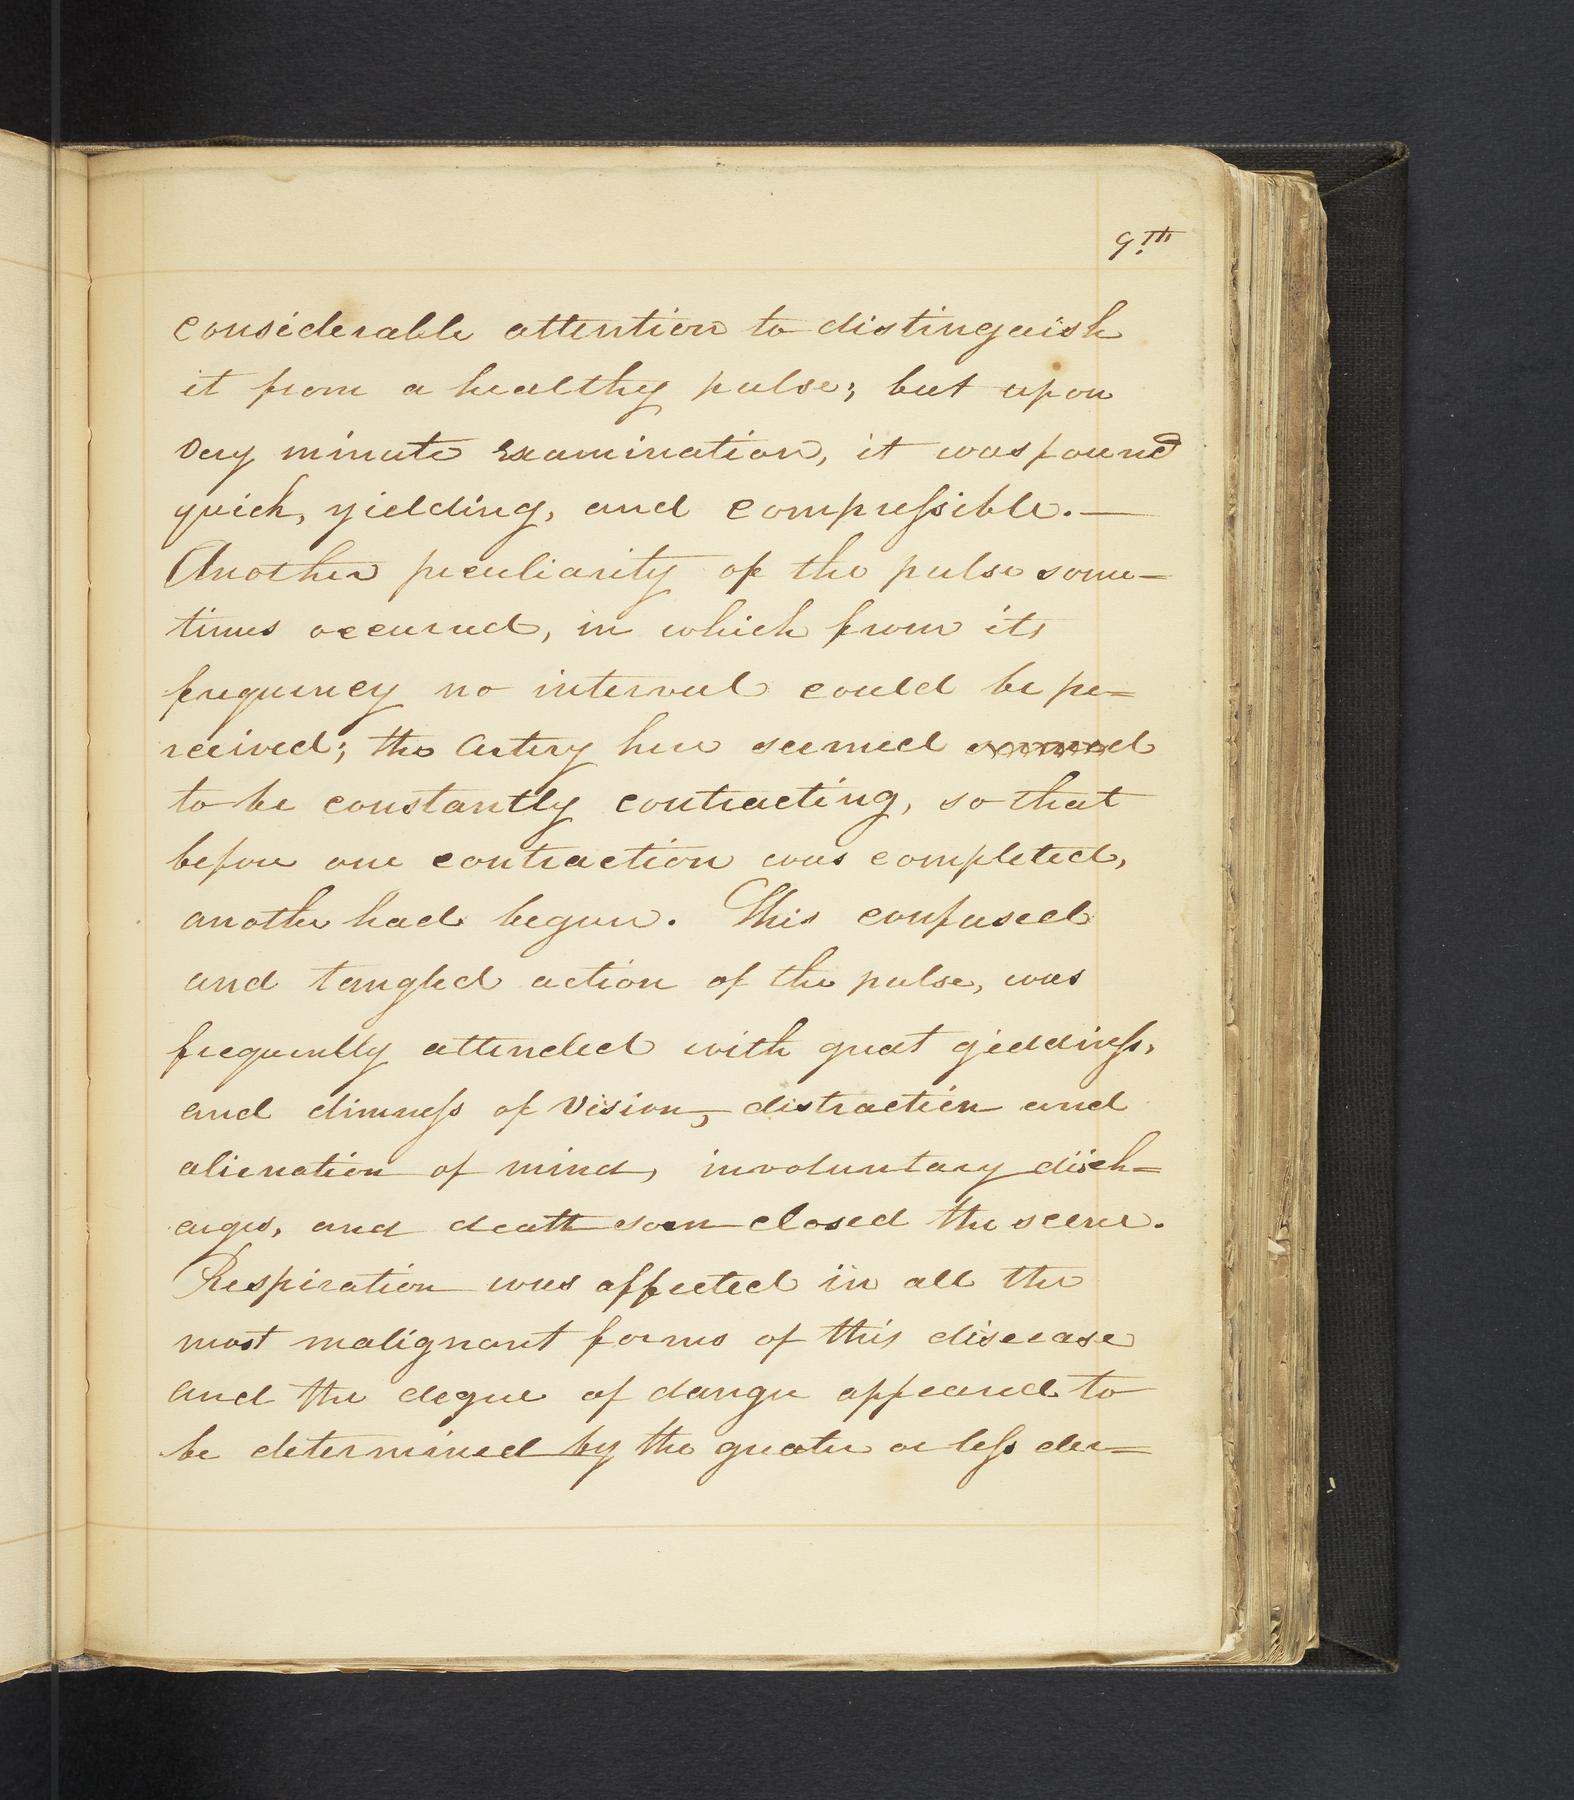 9th
considerable attention to distinguish
it from a healthy pulse; but upon
very minute examination, it was found
quick, yielding, and compressible.—
Another peculiarity of the pulse some=
times occurred, in which from its
frequency no interval could be per=
ceived; the artery here seemed
to be constantly contracting, so that
before one contraction was completed,
another had begun. This confused
and tangled action of the pulse, was
frequently attended with great giddiness,
and dimness of vision, distraction and
alienation of mind, involuntary disch=
arges, and death soon closed the scene.
Respiration was affected in all the
most malignant forms of this disease
and the degree of danger appeared to
be determined by the greater or less der=